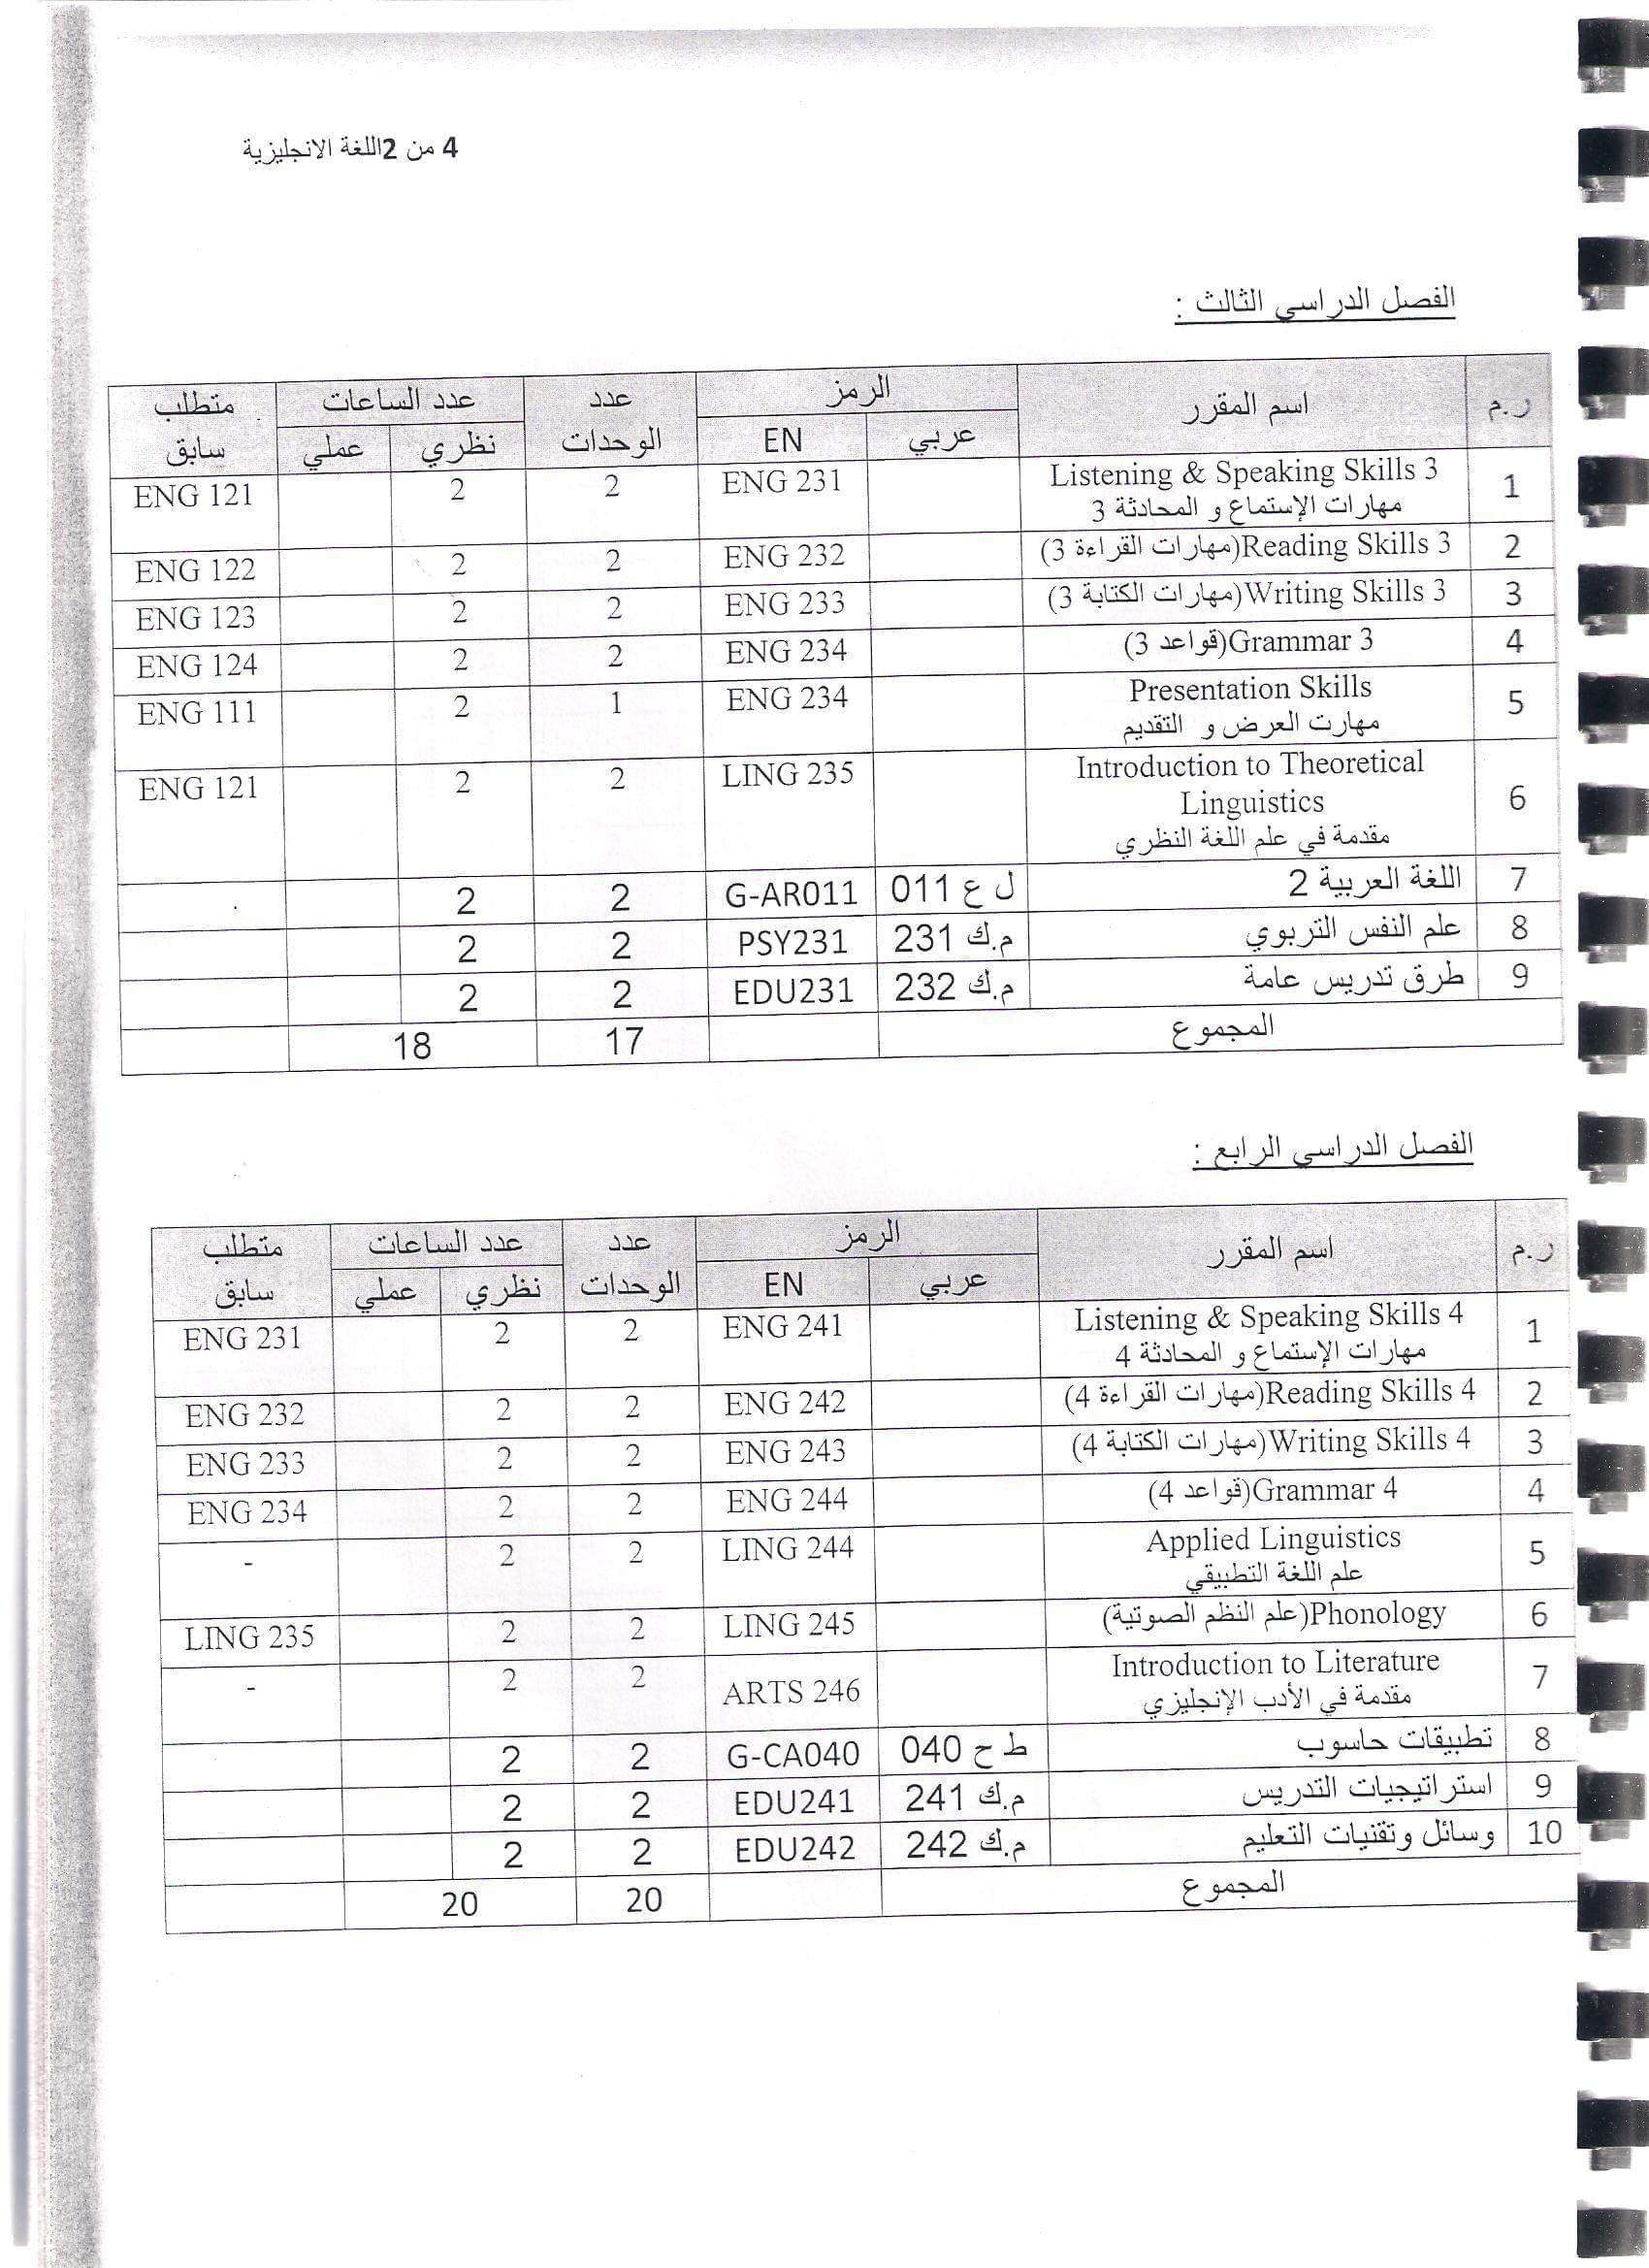 4 من 2اللغة الانجليزية
الفصل الدراسي الثالث :
ر.م اسم المقرر الرمز عدد الوحدات عدد الساعات متطلب سابق
عربي EN نظري عملي
1 Listening & Speaking Skills 3 ENG 231 2 2 ENG 121
مهارات الإستماع و المحادثة 3
2 Reading Skills 3(مهارات القراءة 3) ENG 232 2 2 ENG 122
3 Writing Skills 3(مهارات الكتابة 3) ENG 233 2 2 ENG 123
4 Grammar 3(قواعد 3) ENG 234 2 2 ENG 124
5 Presentation Skills ENG 234 1 2 ENG 111
مهارت العرض و التقديم
6 Introduction to Theoretical LING 235 2 2 ENG 121
Linguistics
مقدمة في علم اللغة النظري
7 اللغة العربية 2 ل ع 011 G-AR011 2 2
8 علم النفس التربوي م.ك 231 PSY231 2 2
9 طرق تدريس عامة م.ك 232 EDU231 2 2
المجموع 17 18
الفصل الدراسي الرابع :
ر.م اسم المقرر الرمز عدد الوحدات عدد الساعات متطلب سابق
عربي EN نظري عملي
1 Listening & Speaking Skills 4 ENG 241 2 2 ENG 231
مهارات الإستماع و المحادثة 4
2 Reading Skills 4(مهارات القراءة 4) ENG 242 2 2 ENG 232
3 Writing Skills 4(مهارات الكتابة 4) ENG 243 2 2 ENG 233
4 Grammar 4(قواعد 4) ENG 244 2 2 ENG 234
5 Applied Linguistics LING 244 2 2 -
علم اللغة التطبيقي
6 Phonology(علم النظم الصوتية) LING 245 2 2 LING 235
7 Introduction to Literature ARTS 246 2 2 -
مقدمة في الأدب الإنجليزي
8 تطبيقات حاسوب ط ح 040 G-CA040 2 2
9 استراتيجيات التدريس م.ك 241 EDU241 2 2
10 وسائل وتقنيات التعليم م.ك 242 EDU242 2 2
المجموع 20 20